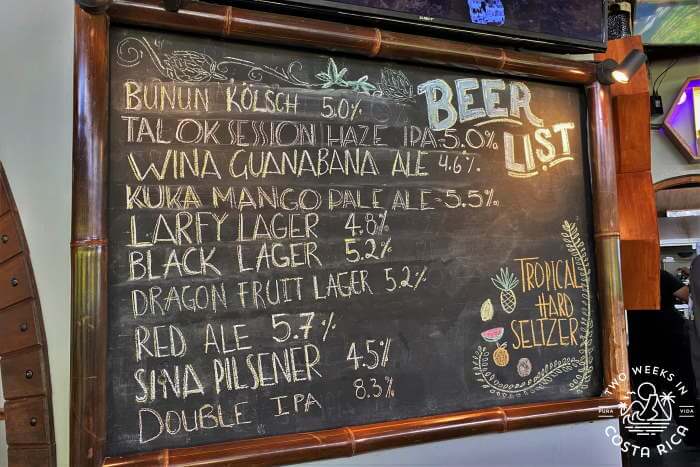 BEER
LIST
BUNUN KÖLSCH 5.0%
TALOK SESSION HAZE IPA-5.0%
WINA GUANABANA ALE 4.6%
KUKA MANGO PALE ALE-5.5%
LARFY LAGER 4.8%
BLACK LAGER 5.2%
DRAGON FRUIT LAGER 5.2%
RED ALE 5.7%
SINA PILSENER 4.5%
DOUBLE IPA 8.3%
TROPICAL
HARD
SELTZER
TWO WEEKS IN
PURA VIDA
COSTA RICA